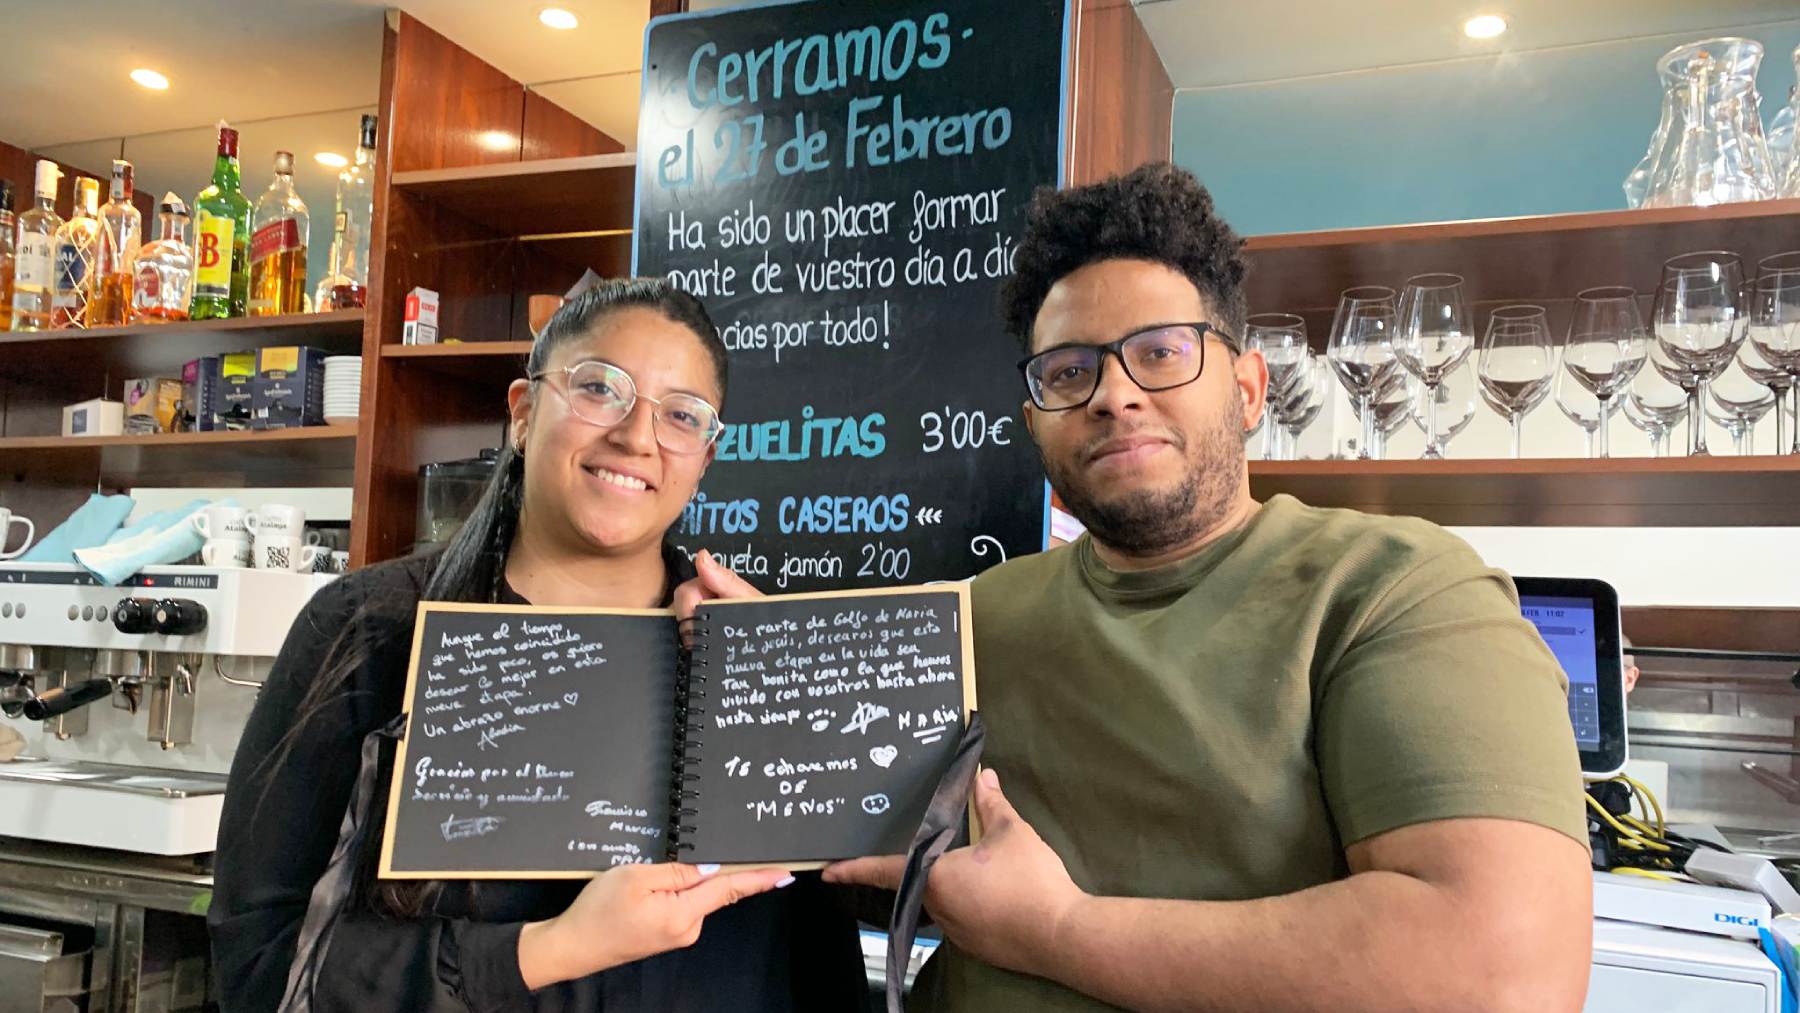 ·Cerramos·
el 27 de Febrero
Ha sido un placer formar
parte de vuestro día a día
cias por todo!
ZUELITAS 3'00€
RITOS CASEROS
queta jamón 2'00
Aunque el tiempo
que hemos coincidido
ha sido poco, os quiero
desear lo mejor en esta
nueva etapa.
Un abrazo enorme ♡
Gracias por el buen
servicio y amistad
Francisco
Marcos
con mucho
De parte de Golfo de Maria
y de Jesús, desearos que esta
nueva etapa en la vida sea
Tan bonita como la que hemos
vivido con vosotros hasta ahora
hasta siempre
MARIA
TE echaremos
DE
"MENOS"
JB
RIMINI
ATALAYA
11:02
DIGI